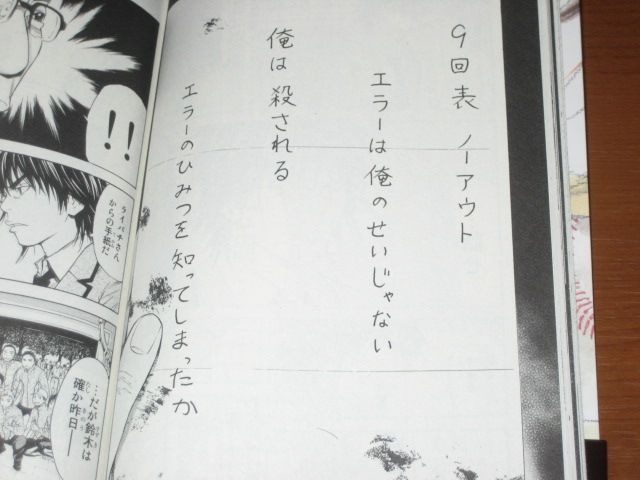 9回表 ノーアウト
エラーは俺のせいじゃない
俺は殺される
エラーのひみつを知ってしまったか
!!
ライパチさん
からの手紙だ
…だが鈴木は
確か昨日――